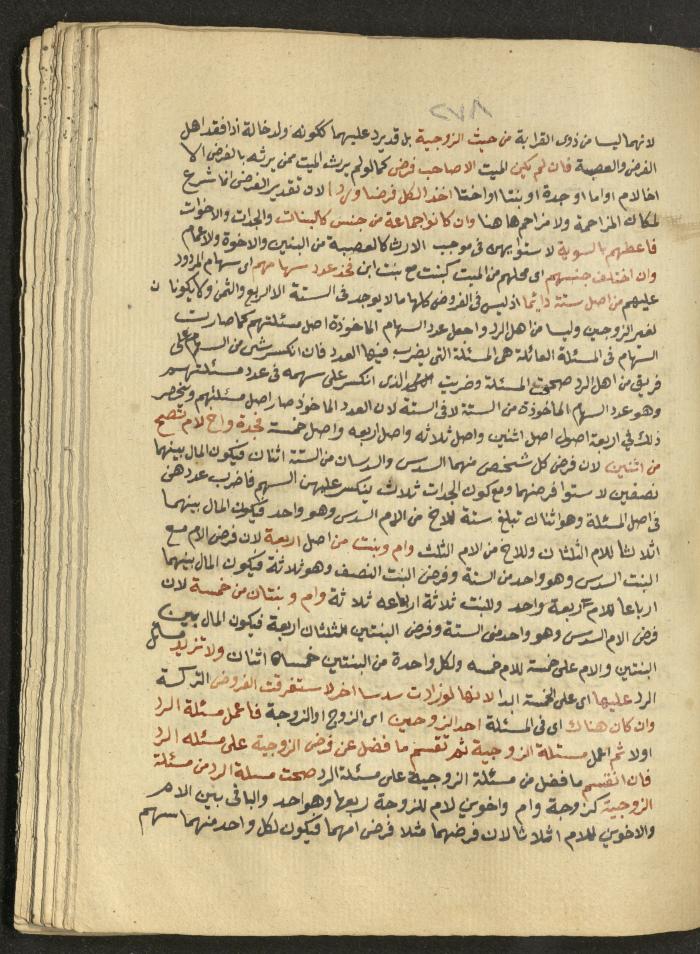 ٢٧٨
لانهما ليسا من ذوى القرابة من حيث الزوجية بل قد يرد عليهما ككونه ولد خالة اذا فقد اهل
الفرض والعصبة فان لم يكن للميت الا صاحب فرض كما لو لم يرث الميت ممن يرثه بالفرض الا
اخا لام او اما او جدة او بنتا او اختا اخذ الكل فرضا وردا لان تقدير الفرض انما شرع
لمكان المزاحمة ولا مزاحم هاهنا وان كانوا جماعة من جنس كالبنات والجدات والاخوات
فاعطهم بالسوية لاستوائهم فى موجب الارث كالعصبة من البنين والاخوة والاعمام
وان اختلف جنسهم اى محلهم من الميت كبنت مع بنت ابن فخذ عدد سهامهم اى سهام المردود
عليهم من اصل ستة دائما اذ ليس فى الفروض كلها ما لا يوجد فى الستة الا الربع والثمن ولا يكونان
لغير الزوجين وليسا من اهل الرد واجعل عدد السهام الماخوذة اصل مسئلتهم كما صارت
السهام فى المسئلة العائلة هى المسئلة التى يضرب فيها العدد فان انكسر شى من السهام على
فريق من اهل الرد صححت المسئلة وضربت الذى انكسر على سهمه فى عدد مسئلتهم
وهو عدد السهام الماخوذة من الستة لا فى الستة لان العدد الماخوذ صار اصل مسئلتهم وينحصر
ذلك فى اربعة اصول اصل اثنين واصل ثلاثه واصل اربعه واصل خمسة فجدة واخ لام تصح
من اثنين لان فرض كل شخص منهما السدس والسدسان من الستة اثنان فيكون المال بينهما
نصفين لاستوا فرضهما ومع كون الجدات ثلاث ينكسر عليهن السهم فاضرب عددهن
فى اصل المسئلة وهو اثنان تبلغ ستة للاخ من الام السدس وهو واحد فيكون المال بينهما
اثلاثا للام الثلثان وللاخ من الام الثلث وام وبنت من اصل اربعة لان فرض الام مع
البنت السدس وهو واحد من الستة وفرض البنت النصف وهو ثلاثة فيكون المال بينهما
ارباعا للام اربعة واحد وللبنت ثلاثة ارباعه ثلاثة وام وبنتان من خمسة لان
فرض الام السدس وهو واحد من الستة وفرض البنتين الثلثان اربعة فيكون المال بين
البنتين والام على خمسة للام خمسه ولكل واحدة من البنتين خمساه اثنان ولا تزيد مسائل
الرد عليها اى على الخمسة ابدا لانها لو زادت سدسا اخر لاستغرقت الفروض التركة
وان كان هناك اى فى المسئلة احد الزوجين اى الزوج او الزوجة فاعمل مسئلة الرد
اولا ثم اعمل مسئلة الزوجية ثم تقسم ما فضل عن فرض الزوجية على مسئله الرد
فان انقسم ما فضل من مسئلة الزوجية على مسئلة الرد صحت مسئلة الرد من مسئلة
الزوجية كزوجة وام واخوين لام للزوجة ربعها وهو واحد والباقى بين الام
والاخوين للام اثلاثا لان فرضهما مثلا فرض امهما فيكون لكل واحد منهما سهم